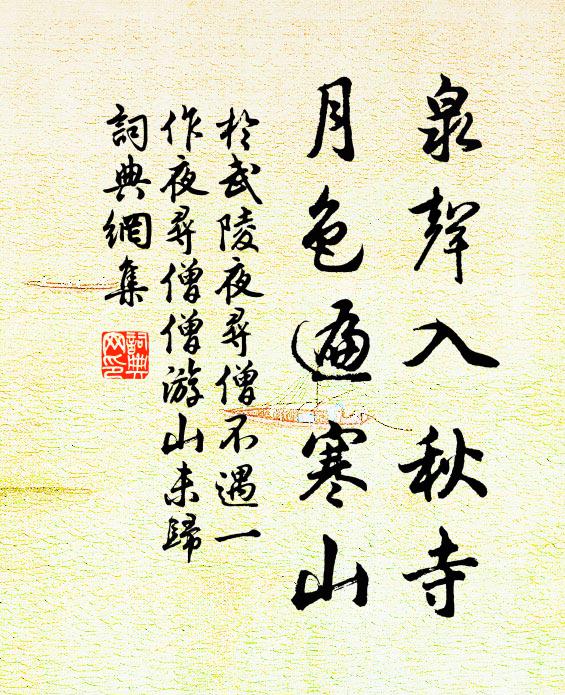 泉聲入秋寺
月色遍寒山
於武陵夜尋僧不遇一
作夜尋僧僧游山未歸
詞典網集
詞典
网印